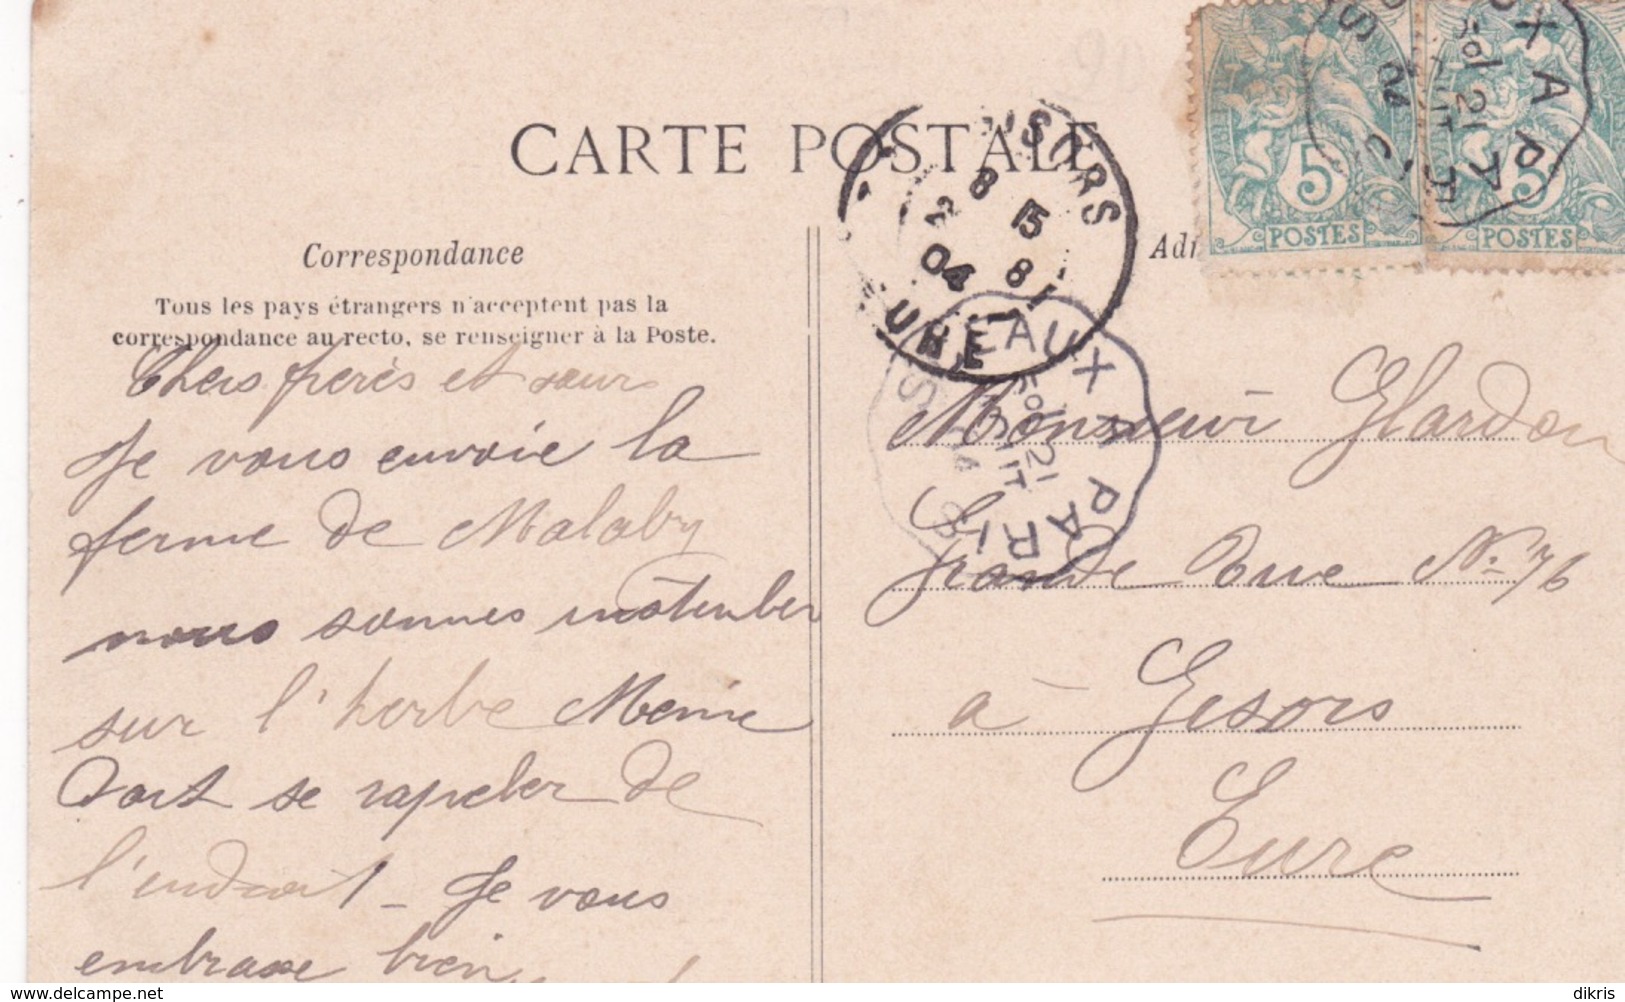 CARTE POSTALE
Correspondance
Tous les pays étrangers n'acceptent pas la
correspondance au recto, se renseigner à la Poste.
Chers freres et sœurs
Je vous envoie la
ferme de Malaby
nous sommes
sur l'herbe Meme
doit se rapeler de
l'endroit - Je vous
embrasse bien
Adr
Monsieur Glardon
Grande Rue No 76
à Gesors
Eure
5 POSTES
5 POSTES
SORS
8 15
2 8
04
URE
EAUX A PARIS
X A PARIS
www.delcampe.net
dikris